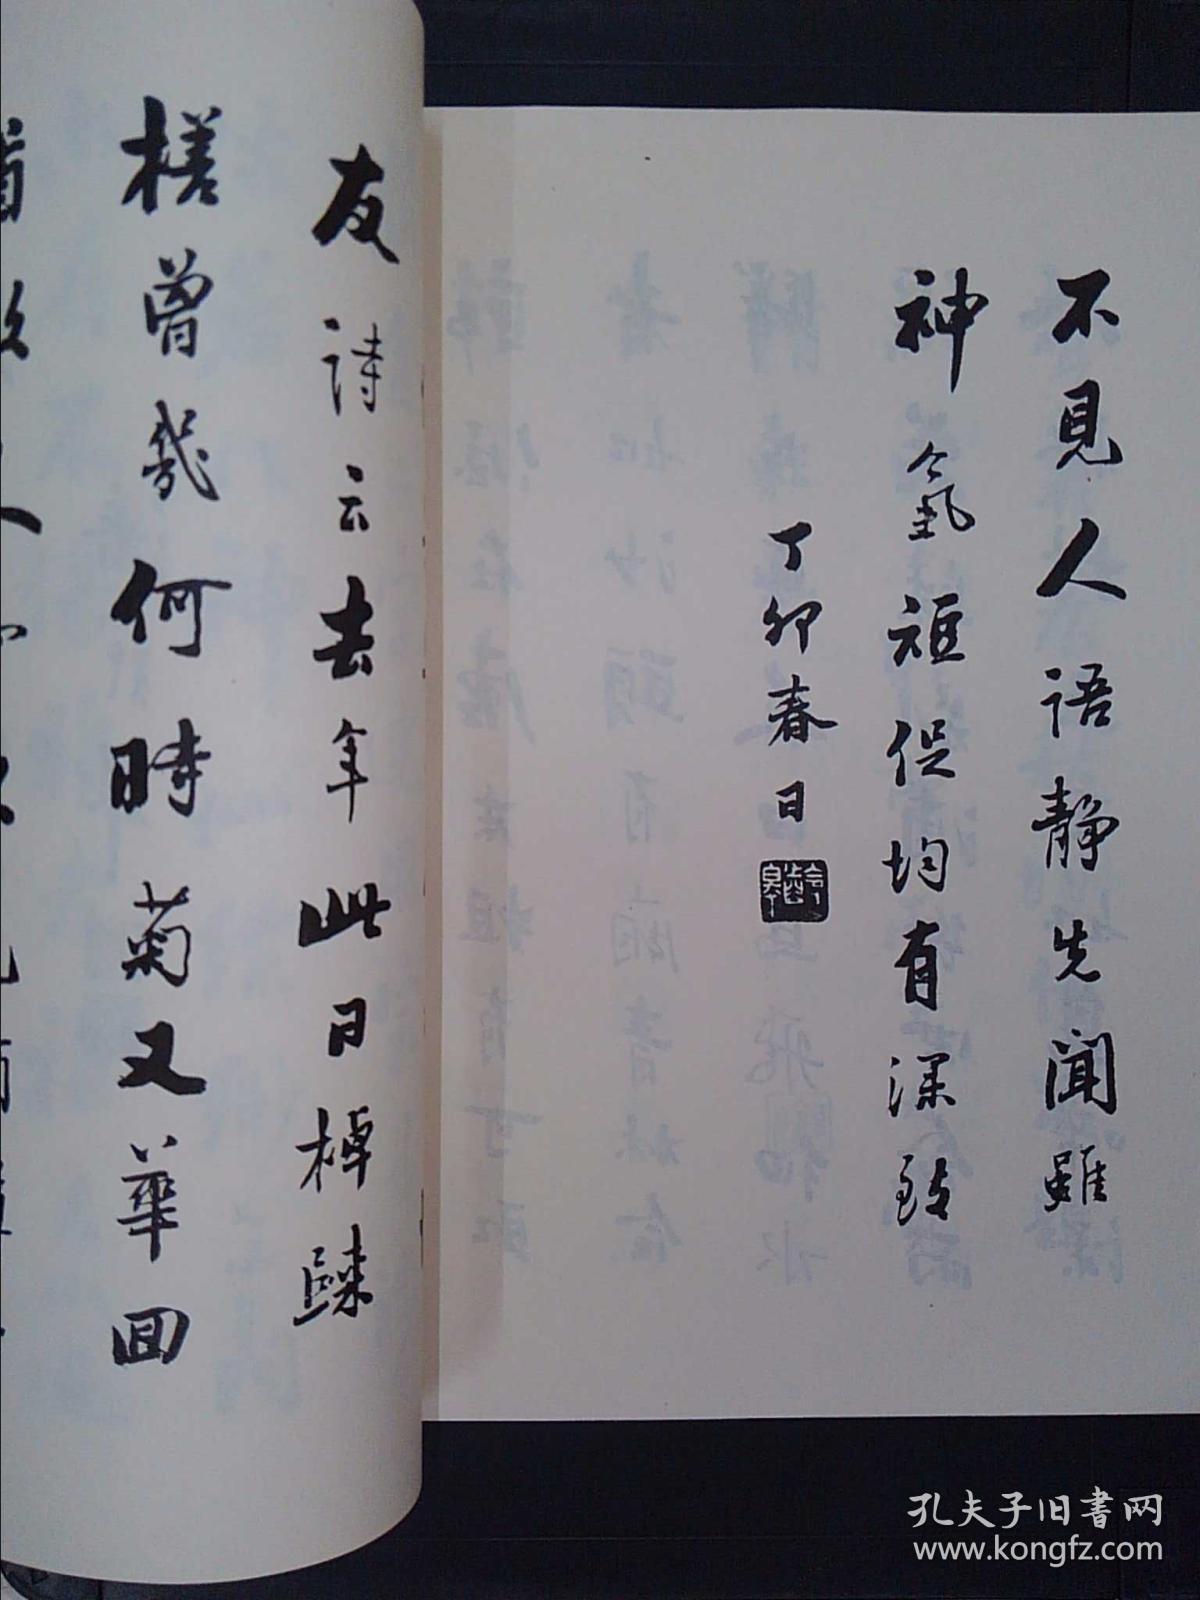 不見人語静先聞雖
神氣短促均有深致
丁卯春日
友詩云去年此日棹
槎曾幾何時菊又華回
孔夫子旧书网
www.kongfz.com